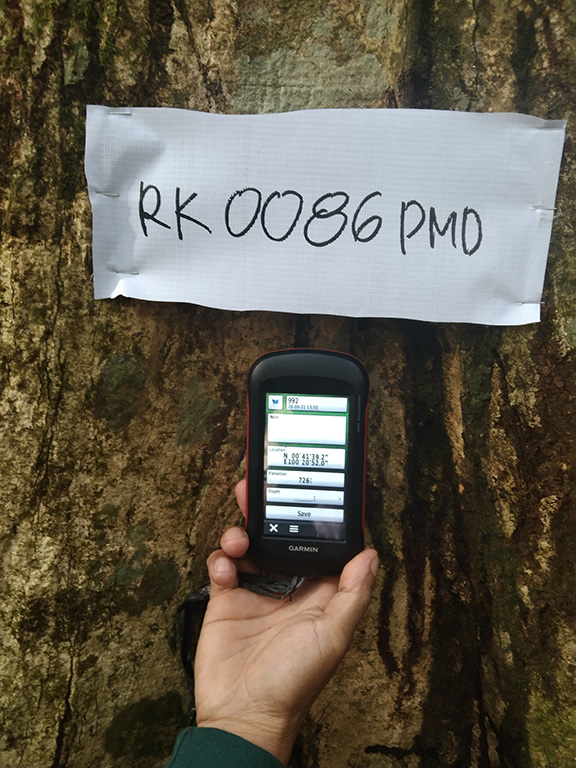 RK 0086 PMD
992
Note
Location
N 00°41'39.2"
E100°20'52.0"
Elevation
Depth
Save
GARMIN